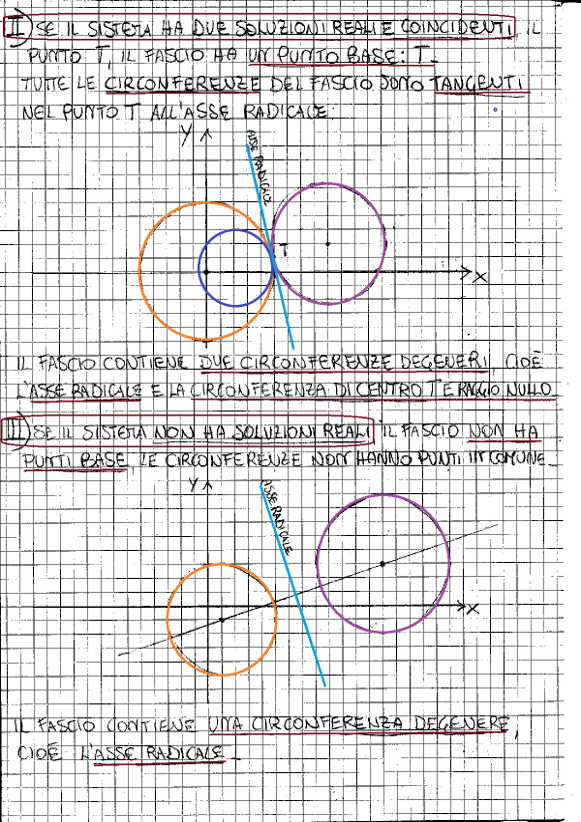 II) SE IL SISTEMA HA DUE SOLUZIONI REALI E COINCIDENTI, IL
PUNTO T, IL FASCIO HA UN PUNTO BASE: T.
TUTTE LE CIRCONFERENZE DEL FASCIO SONO TANGENTI
NEL PUNTO T ALL'ASSE RADICALE.
Y
ASSE RADICALE
T
X
IL FASCIO CONTIENE DUE CIRCONFERENZE DEGENERI, CIOÈ
L'ASSE RADICALE E LA CIRCONFERENZA DI CENTRO T E RAGGIO NULLO.
III) SE IL SISTEMA NON HA SOLUZIONI REALI IL FASCIO NON HA
PUNTI BASE, LE CIRCONFERENZE NON HANNO PUNTI IN COMUNE.
Y
ASSE RADICALE
X
IL FASCIO CONTIENE UNA CIRCONFERENZA DEGENERE,
CIOÈ L'ASSE RADICALE.